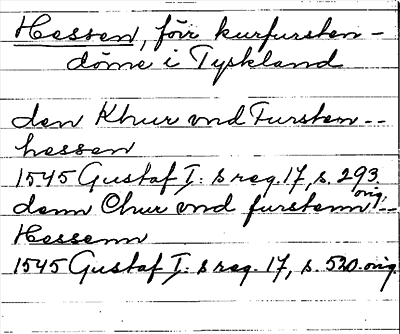 Hessen, förr kurfursten-
döme i Tyskland
den Khur vnd Fursten --
hessen
1545 Gustaf I: s reg. 17, s. 293 orig.
denn Chur vnd furstenn --
Hessenn
1545 Gustaf I: s reg. 17, s. 520. orig